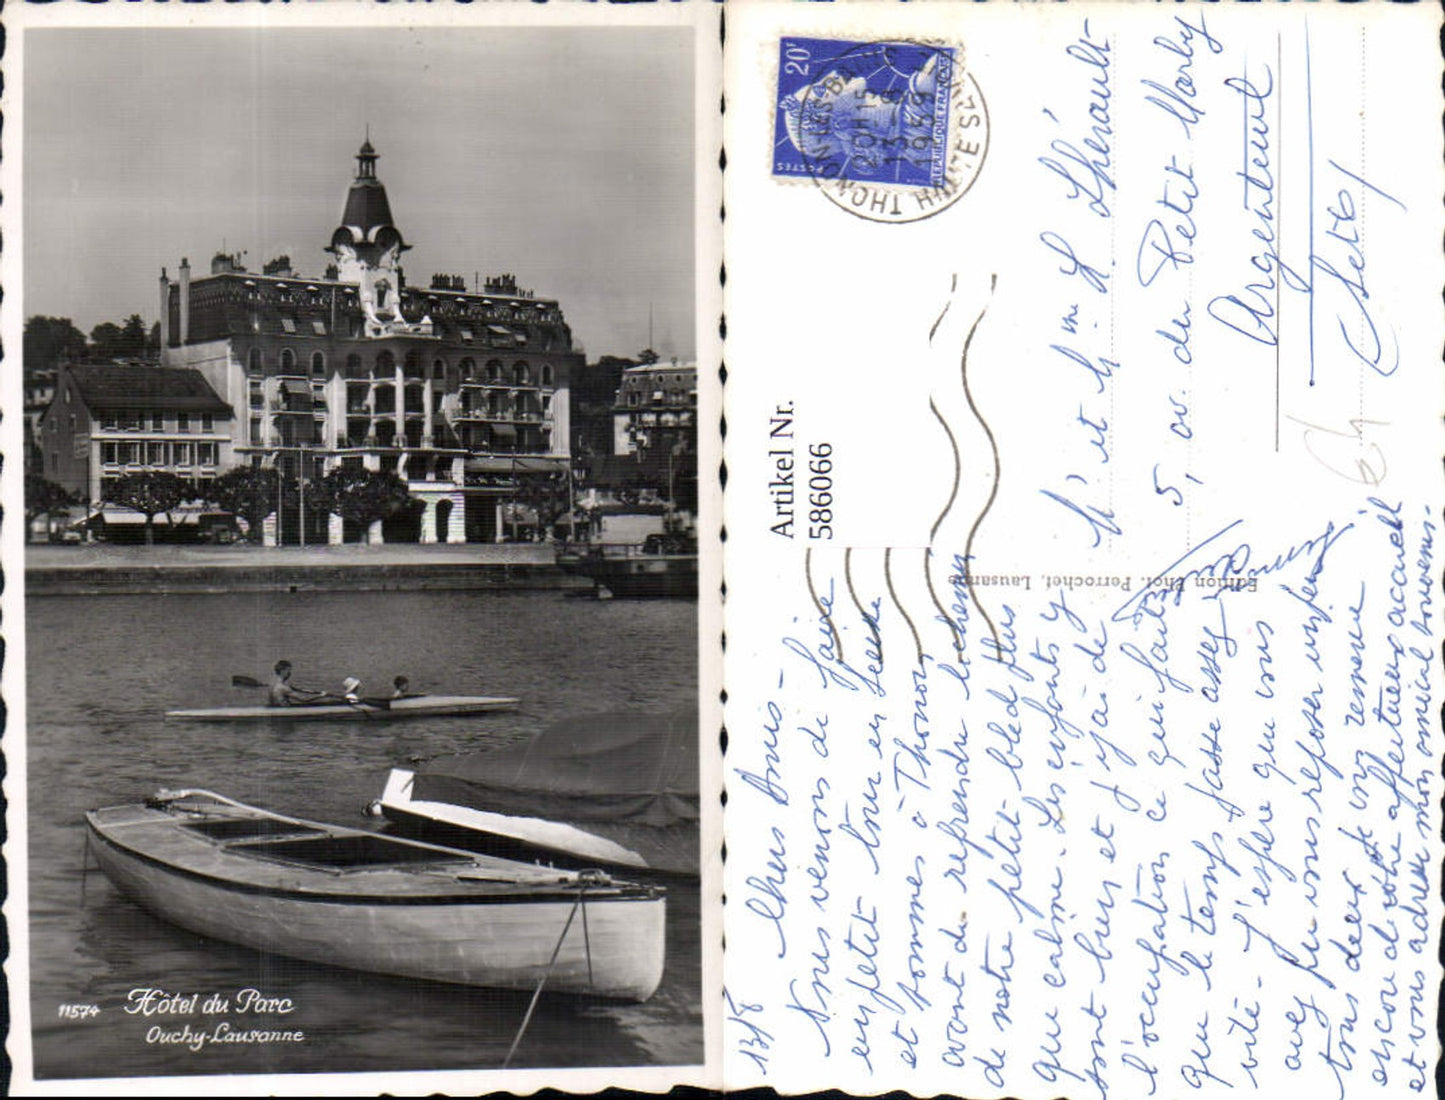 11574 Hôtel du Parc
Ouchy-Lausanne
20F
POSTES
REPUBLIQUE FRANÇAISE
THONON-LES-BAINS
20H15
13-8
1959
Artikel Nr.
586066
Edition Phot. Perrochet, Lausanne
13/8
Chers Amis -
Nous venons de faire
un petit tour en Suisse
et sommes à Thonon
avant de reprendre le chemin
de notre petit bled plus
que calme. Les enfants y
sont bien et j'y ai de
l'occupation ce qui fait
que le temps passe assez
vite - J'espère que vous
avez pu vous reposer un peu
tous deux et vous remercie
encore de votre affectueux accueil
et vous adresse mon amical souvenir.
Mr et Mme H. Lhérault
5, av. du Petit Marly
Argenteuil
(S et O)